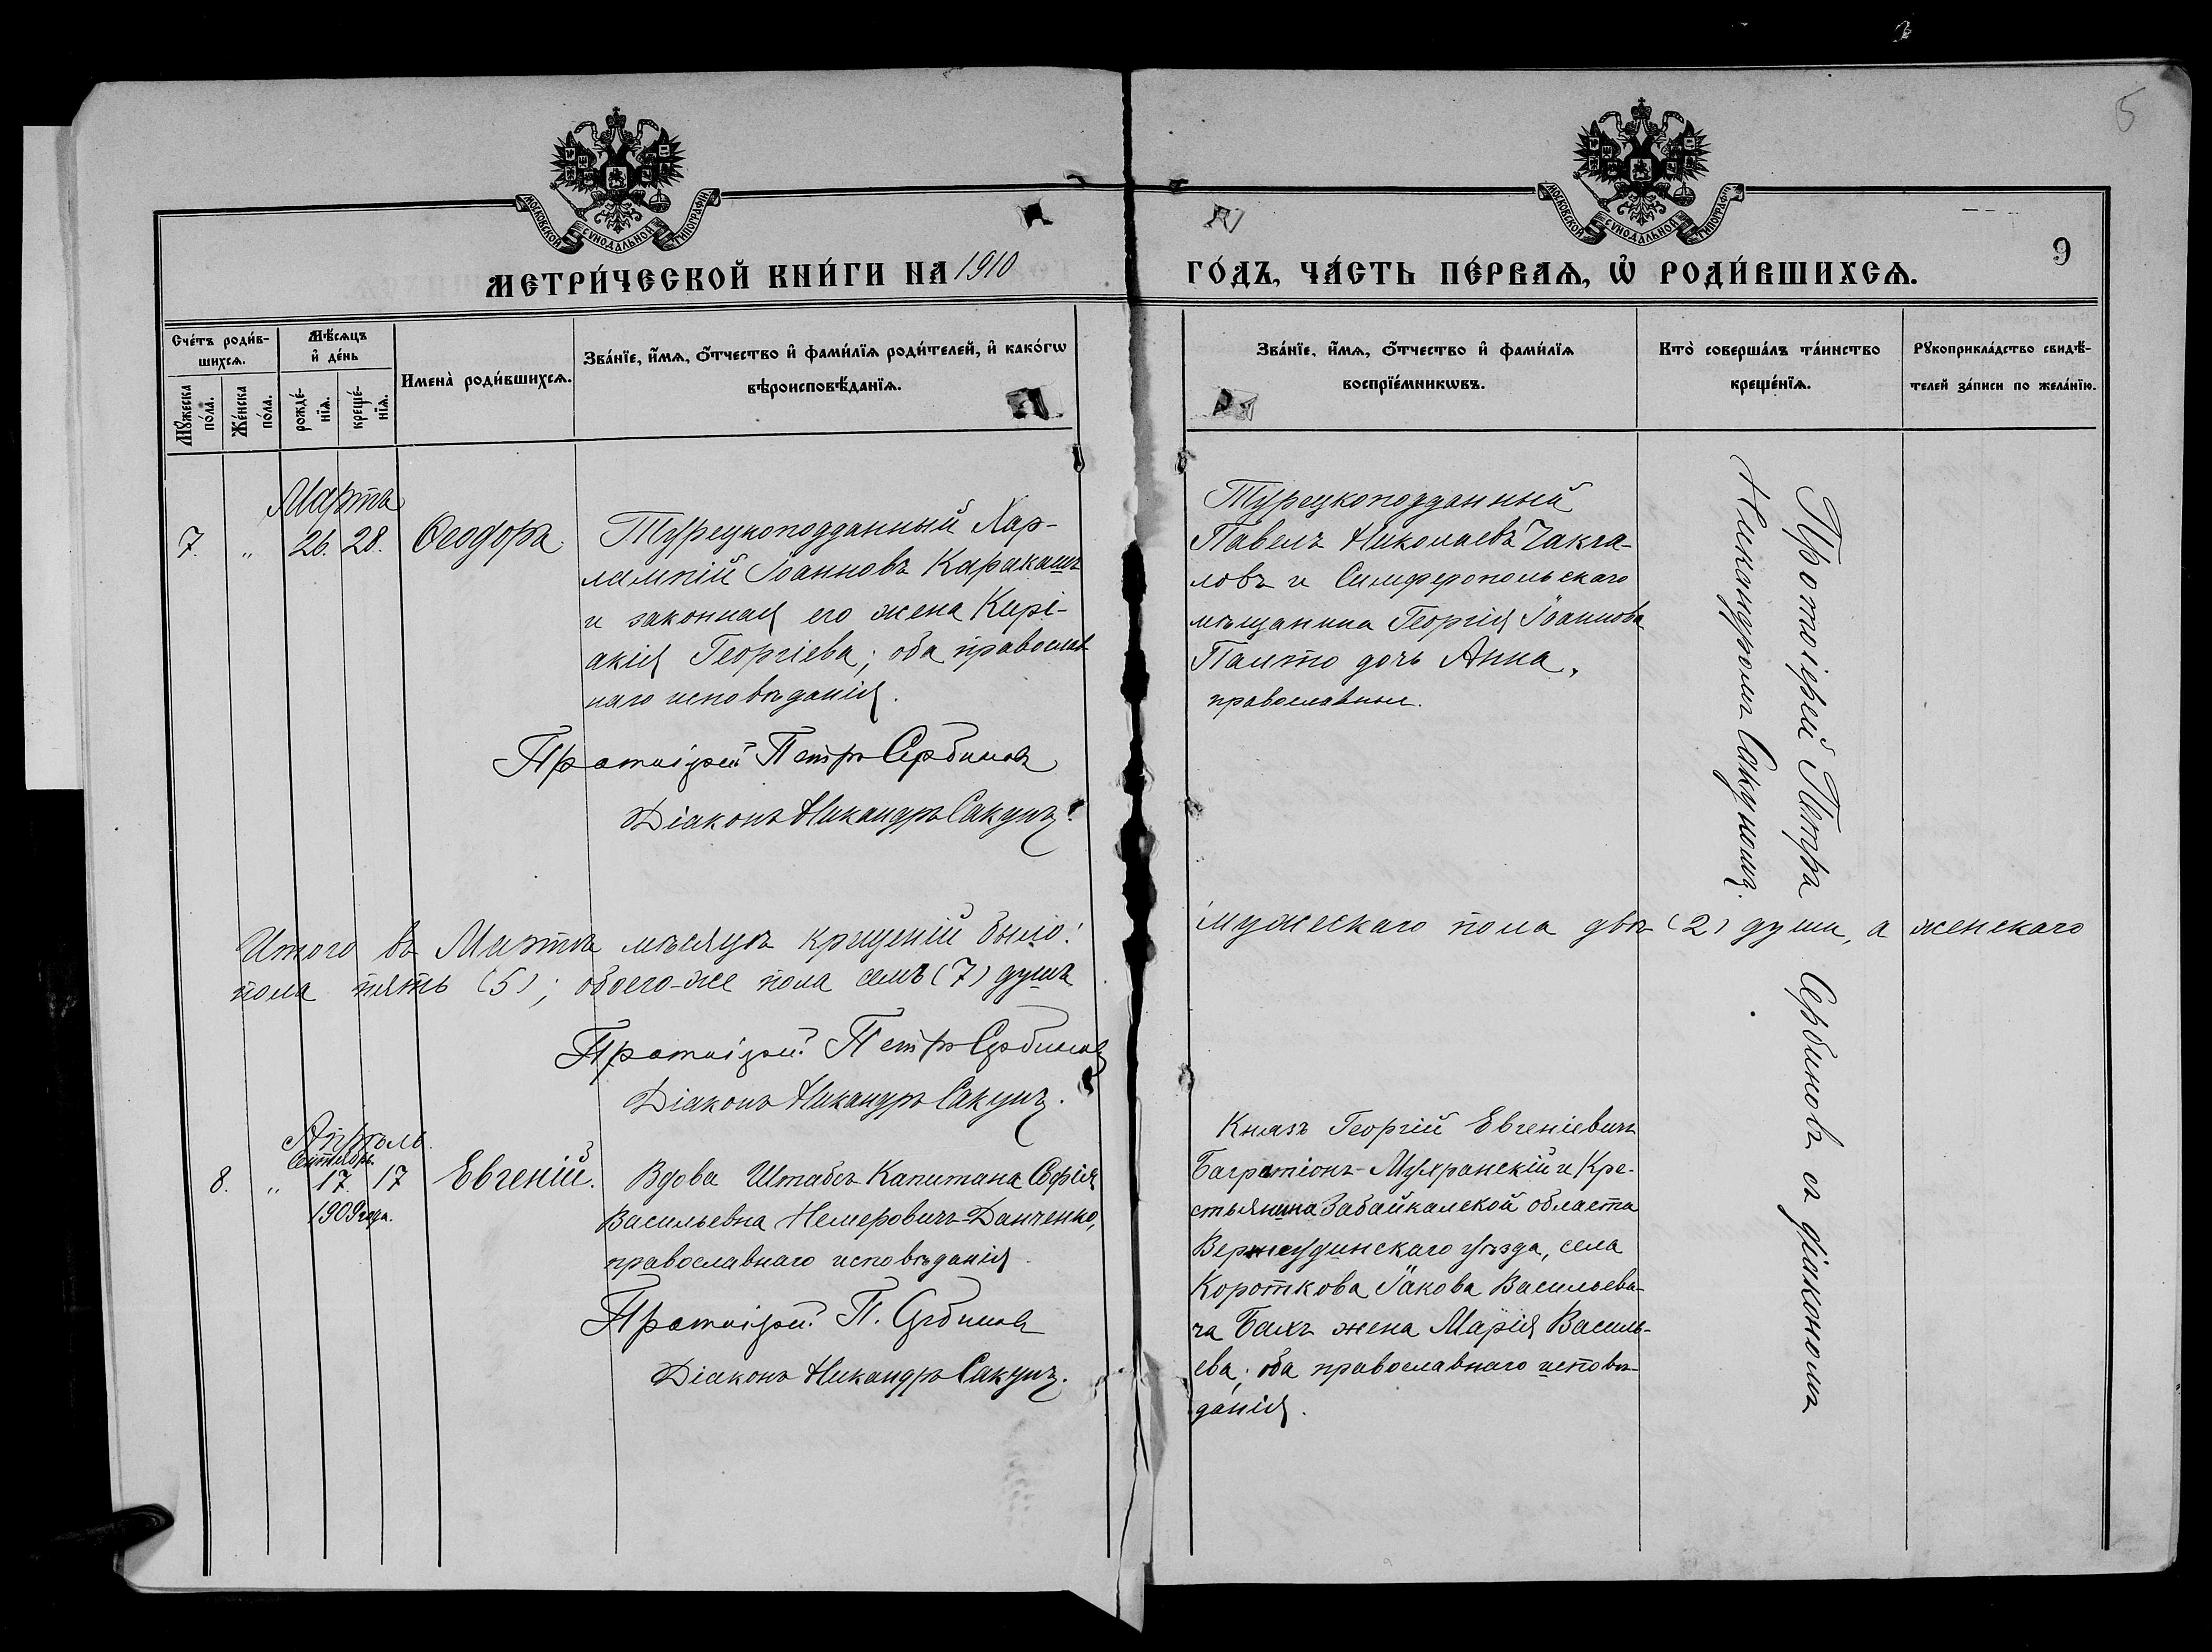 5
МОСКОВСКОЙ СУНОДАЛЬНОЙ ТИПОГРАФІИ
МОСКОВСКОЙ СУНОДАЛЬНОЙ ТИПОГРАФІИ
9
МЕТРИ́ЧЕСКОЙ КНИ́ГИ НА 1910
ГО́ДЪ, ЧА́СТЬ ПЕ́РВАѦ, Ѡ҆ РОДИ́ВШИХСѦ.
Сче́тъ роди́в-
шихсѧ.
Мꙋ́жеска
по́ла.
Же́нска
по́ла.
Мѣ́сѧцъ
и҆ де́нь
рожде́-
нїѧ.
креще́-
нїѧ.
Имена̀ роди́вшихсѧ.
Зва́нїе, и҆́мѧ, ѻ҆́тчество и҆ фами́лїѧ роди́телей, и҆ како́гѡ
вѣроисповѣ́данїѧ.
Зва́нїе, и҆́мѧ, ѻ҆́тчество и҆ фами́лїѧ
воспрїе́мникѡвъ.
Кто̀ соверша́лъ та́инство
креще́нїѧ.
Рꙋкоприкла́дство свидѣ́-
телей за́писи по жела́нїю.
Марта
7. " 26. 28. Ѳеодора.
Турецкоподданный Хар-
лампій Іоанновъ Каракашъ
и законная его жена Кирі-
акія Георгіева; оба православ
наго исповѣданія.
Протоіерей Петръ Сербиновъ
Діаконъ Никандръ Сакунъ.
Турецкоподданный
Павелъ Николаевъ Чакча-
ловъ и Симферопольскаго
мѣщанина Георгія Іоаннова
Палто дочь Анна,
православные.
Протоіерей Петръ Сербиновъ съ діакономъ
Никандромъ Сакуномъ.
Итого въ Мартѣ мѣсяцѣ крещеній было: мужескаго пола двѣ (2) души, а женскаго
пола пять (5); обоего-же пола семь (7) душъ
Протоіерей Петръ Сербиновъ
Діаконъ Никандръ Сакунъ.
Апрѣль.
Сентябрь.
8. " 17. 17 Евгеній.
1909 года.
Вдова Штабсъ Капитана Софія
Васильевна Немеровичъ-Данченко,
православнаго исповѣданія.
Протоіерей П. Сербиновъ
Діаконъ Никандръ Сакунъ.
Князь Георгій Евгеніевичъ
Багратіонъ-Мухранскій и Кре-
стьянина Забайкалской области
Верхнеудинскаго уѣзда, села
Короткова Іакова Васильеви-
ча Балъ жена Марія Василь-
ева; оба православнаго исповѣ-
данія.